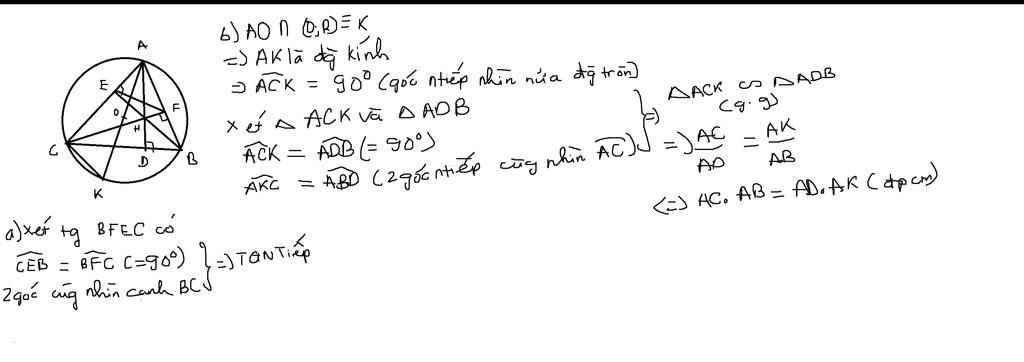 A
E
F
O
H
C
D
B
K
b) AO ∩ (O;R) ≡ K
=) AK là đg kính
=) ACK = 90° (góc ntiếp nhìn nửa đg tròn)
xét △ ACK và △ ADB
ACK = ADB (= 90°)
AKC = ABD (2 góc ntiếp cùng nhìn AC)
} =) △ACK ∽ △ADB
(g.g)
=) AC/AD = AK/AB
<=) AC. AB = AD. AK (đpcm)
a) xét tg BFEC có
CEB = BFC (=90°)
2 góc cùng nhìn cạnh BC
} =) TGNTiếp